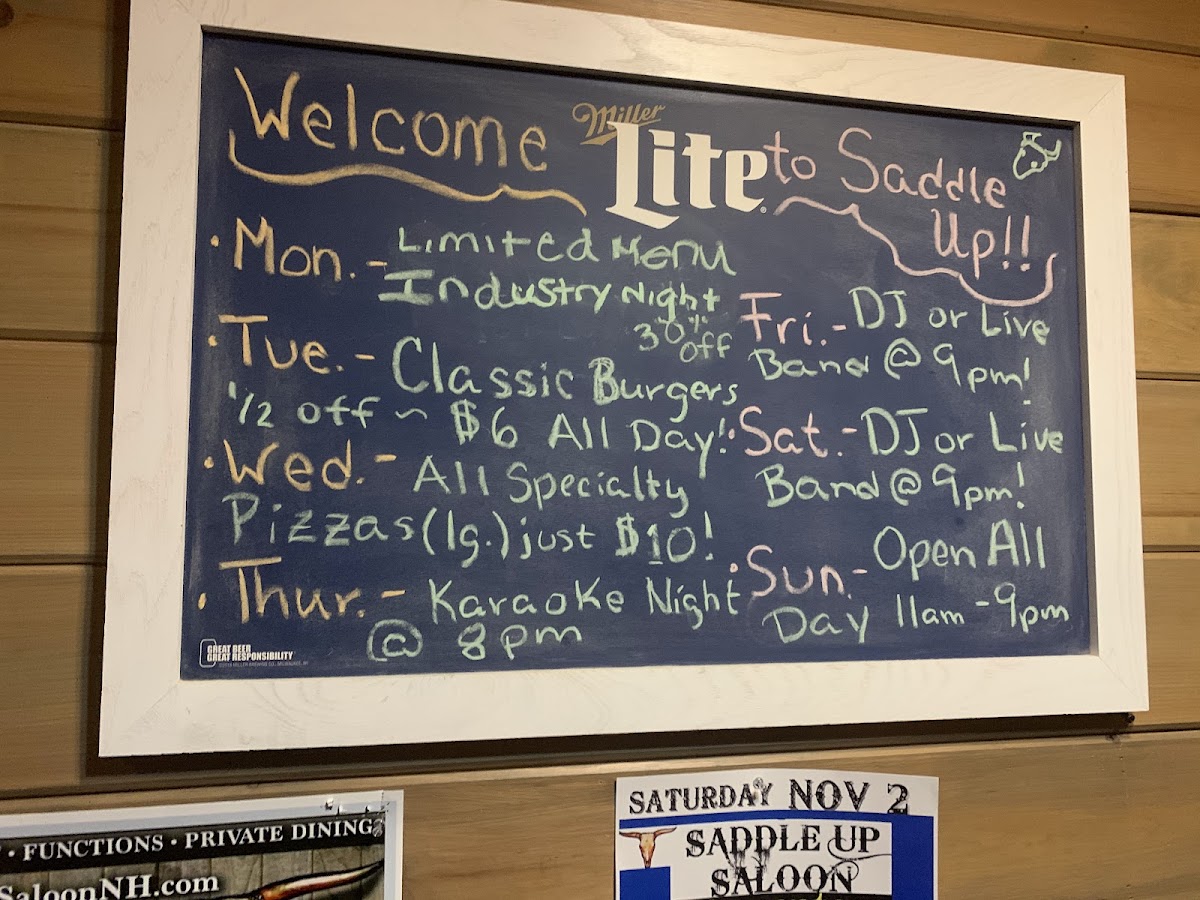 Welcome Miller Lite to Saddle Up!!
• Mon. - Limited Menu
Industry Night
30% off
• Tue. - Classic Burgers
1/2 off ~ $6 All Day!
• Wed. - All Specialty
Pizzas (lg.) just $10!
• Thur. - Karaoke Night
@ 8pm
Fri. - DJ or Live
Band @ 9pm!
• Sat. - DJ or Live
Band @ 9pm!
• Sun. - Open All
Day 11am - 9pm
GREAT BEER
GREAT RESPONSIBILITY
• FUNCTIONS • PRIVATE DINING
SaloonNH.com
SATURDAY NOV 2
SADDLE UP
SALOON